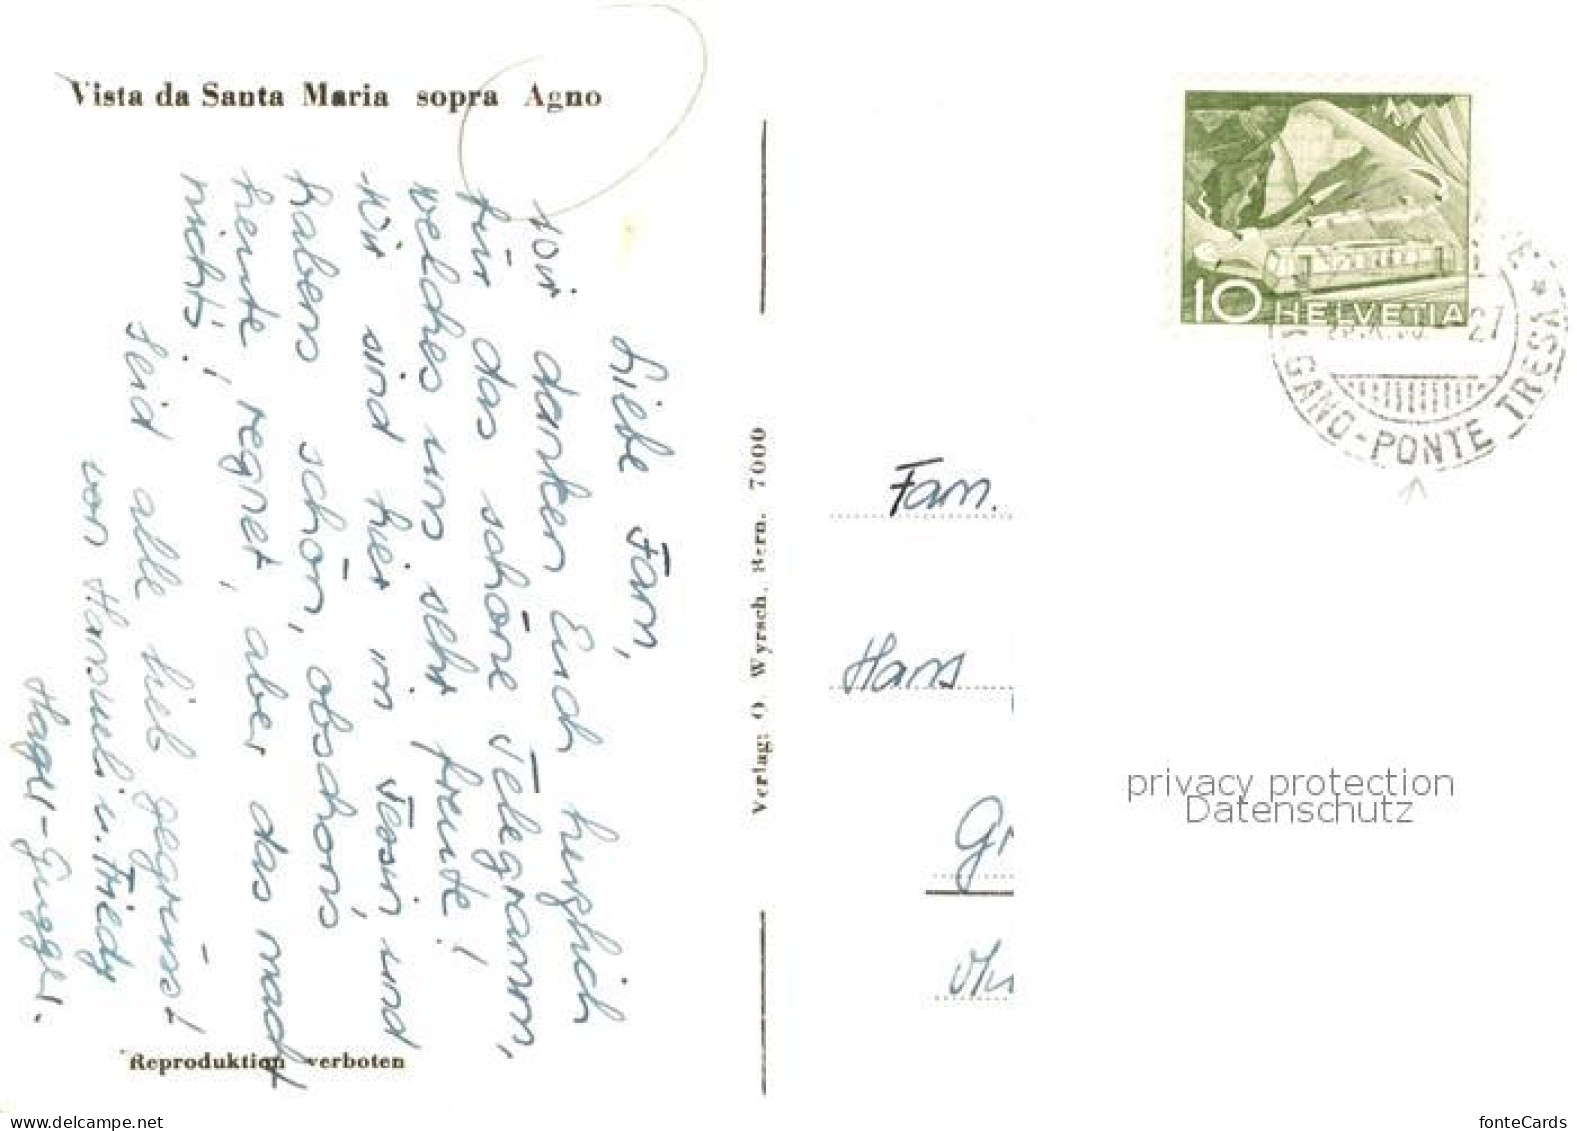 Vista da Santa Maria sopra Agno
Liebe Fam,
wir danken Euch herzlich
für das schöne Telegramm,
welches uns sehr freute!
Wir sind hier im Tessin und
habens schön, obschons
heute regnet, aber das macht
nichts!
Seid alle lieb gegrüsst
von Hansueli u. Friedy
Hager-Gugger.
Reproduktion verboten
Verlag: O. Wyrsch, Bern. 7000
10 HELVETIA
27
GANO-PONTE TRESA *
Fam.
Hans
privacy protection
Datenschutz
www.delcampe.net
fonteCards